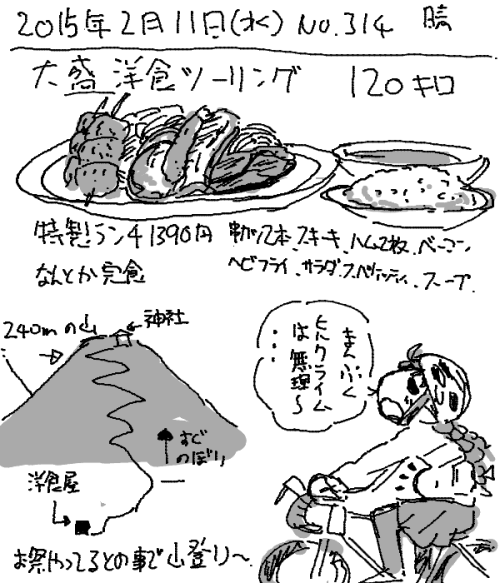 2015年2月11日(水) No.314 晴
大盛洋食ツーリング 120キロ
特製ランチ1390円
なんとか完食
串カツ2本、ステーキ、ハム2枚、ベーコン
ヘビフライ、サラダ、スパゲッティ、スープ
240mの山
神社
すぐのぼり
洋食屋
お祭やってるとの事で山登り〜
まんぷく
ヒルクライム
は無理〜
・・・